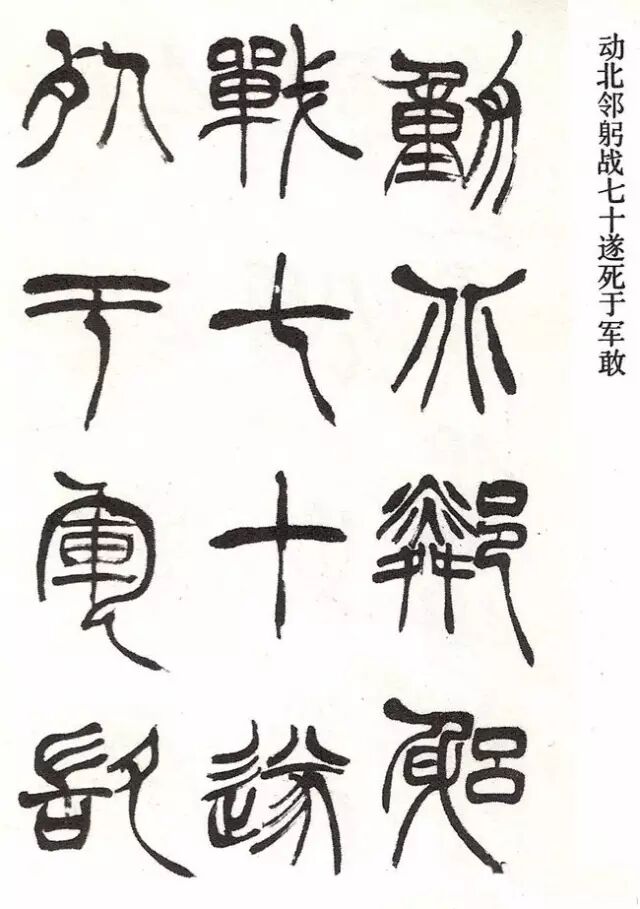 動北鄰躳
戰七十遂
死于軍敢
动北邻躬战七十遂死于军敢